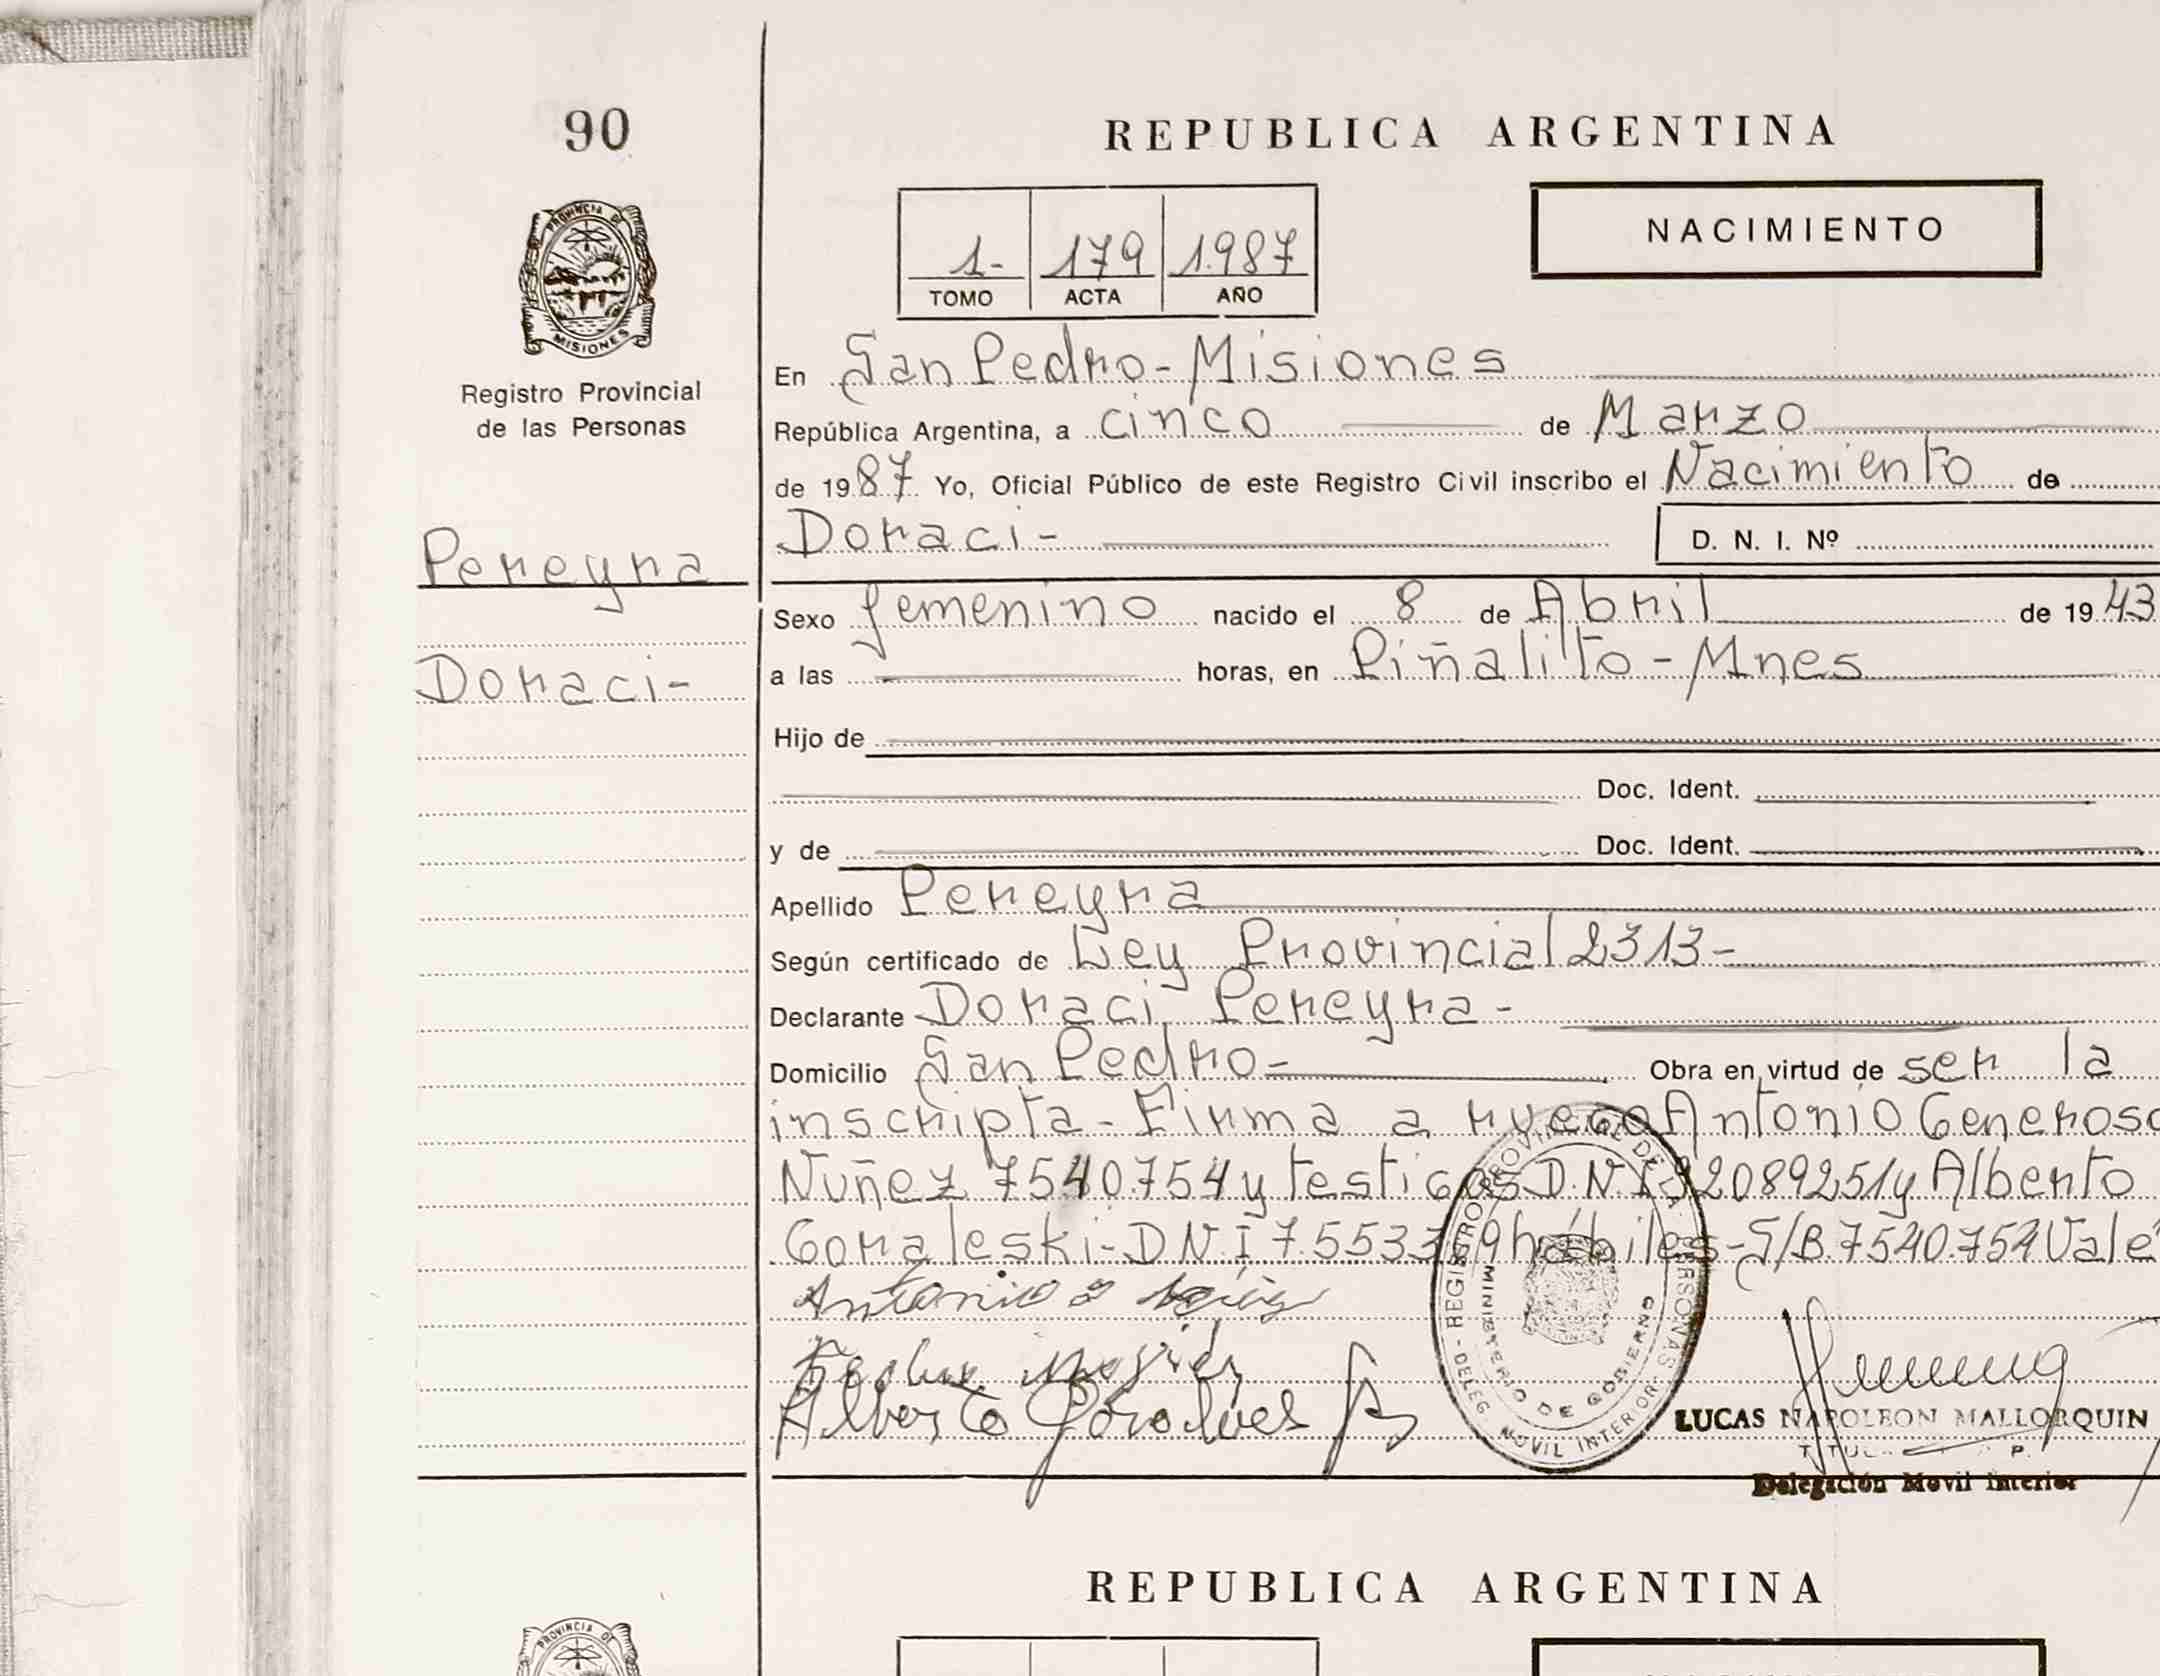 90
REPUBLICA ARGENTINA
PROVINCIA DE
MISIONES
Registro Provincial
de las Personas
1- 179 1.987
TOMO ACTA AÑO
NACIMIENTO
En San Pedro - Misiones
República Argentina, a cinco de Marzo
de 1987 Yo, Oficial Público de este Registro Civil inscribo el Nacimiento de
Doraci - D. N. I. Nº
Pereyra
Doraci -
Sexo femenino nacido el 8 de Abril de 1943
a las horas, en Piñalito - Mnes
Hijo de
Doc. Ident.
y de Doc. Ident.
Apellido Pereyra
Según certificado de Ley Provincial 2313 -
Declarante Doraci Pereyra -
Domicilio San Pedro - Obra en virtud de ser la
inscripta - Firma a ruego Antonio Generoso
Nuñez 7540.754 y testigos D.N.I 2089251 y Alberto
Goraleski - DNI 7.5533 9 hábiles - S/B. 7540.754 Vale
Antonio
Alberto
REGISTRO PROVINCIAL DE LAS PERSONAS
MINISTERIO DE GOBIERNO
DELEG. MOVIL INTERIOR
LUCAS NAPOLEON MALLORQUIN
Delegación Movil Interior
REPUBLICA ARGENTINA
PROVINCIA DE